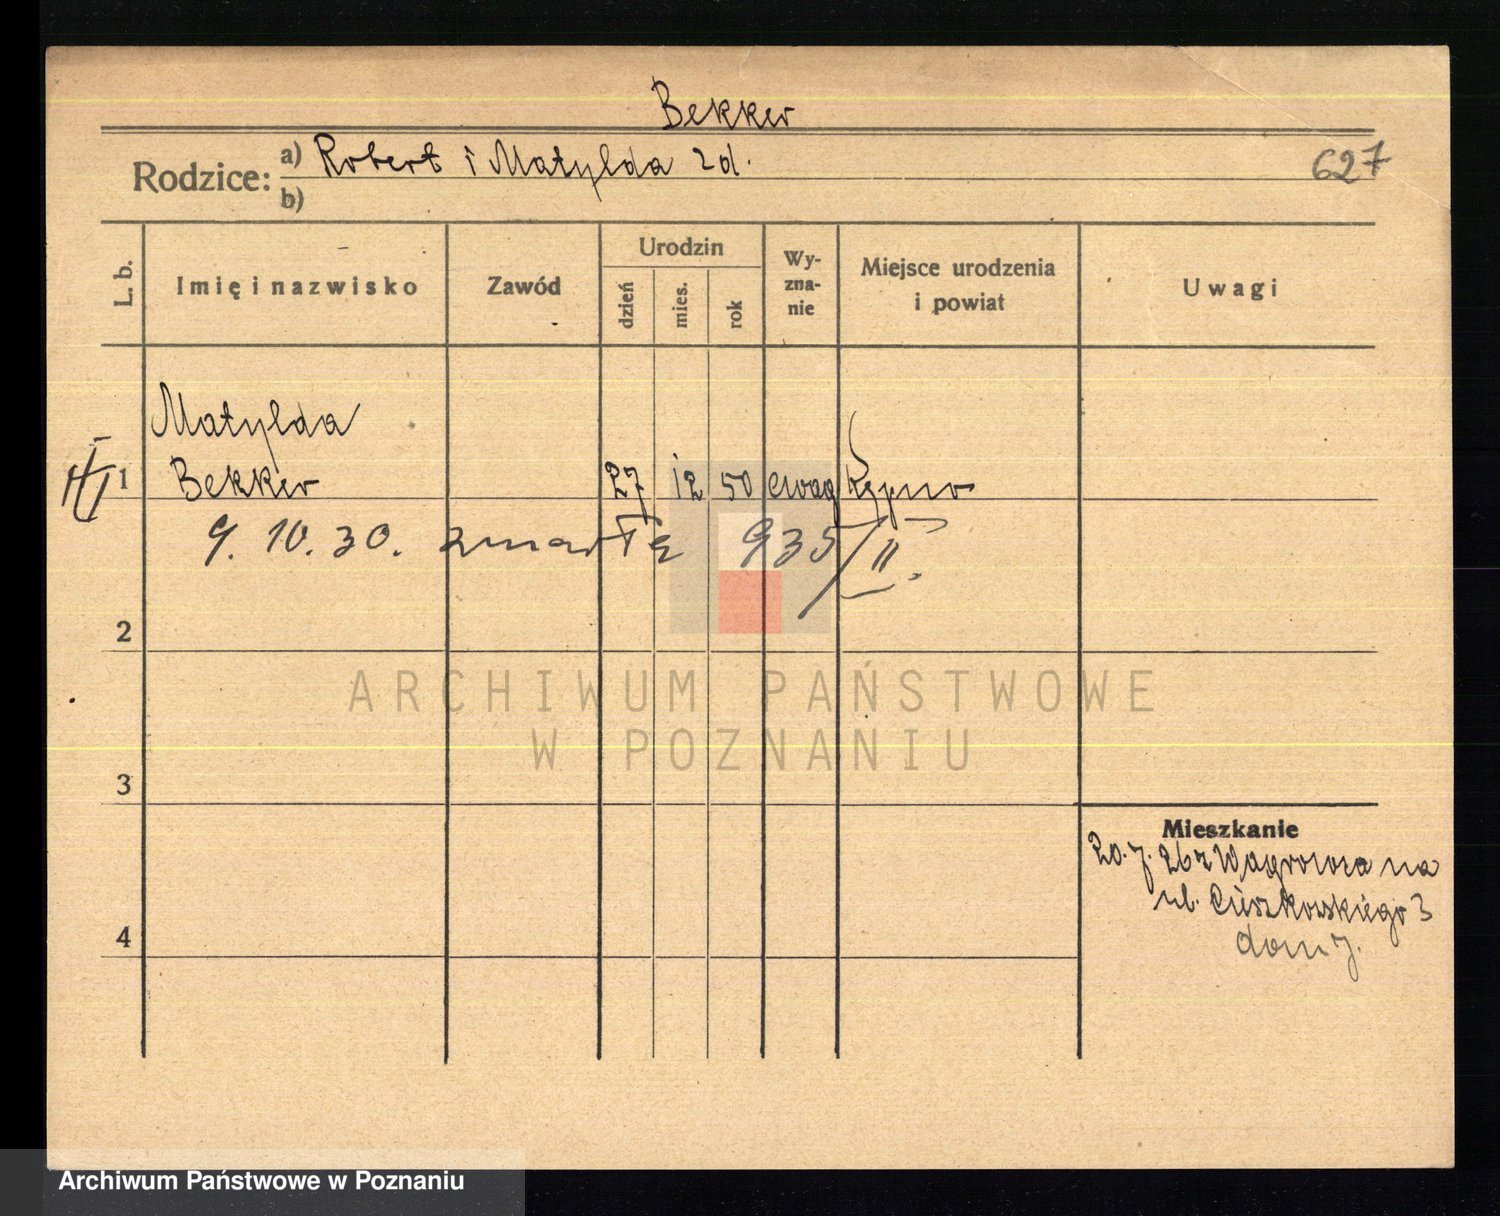 Bekker
Rodzice: a) Robert i Matylda zd.
627
b)
L. b. Imię i nazwisko Zawód Urodzin dzień mies. rok Wyznanie Miejsce urodzenia i powiat Uwagi
Matylda
1 Bekker 27 12 50 ewag Kępno
9. 10. 30. zmarła 935/II.
2
ARCHIWUM PAŃSTWOWE
W POZNANIU
3
Mieszkanie
20. 7. 26 z Wągrowca na
ul. Cieszkowskiego 3
4
dom 7.
Archiwum Państwowe w Poznaniu